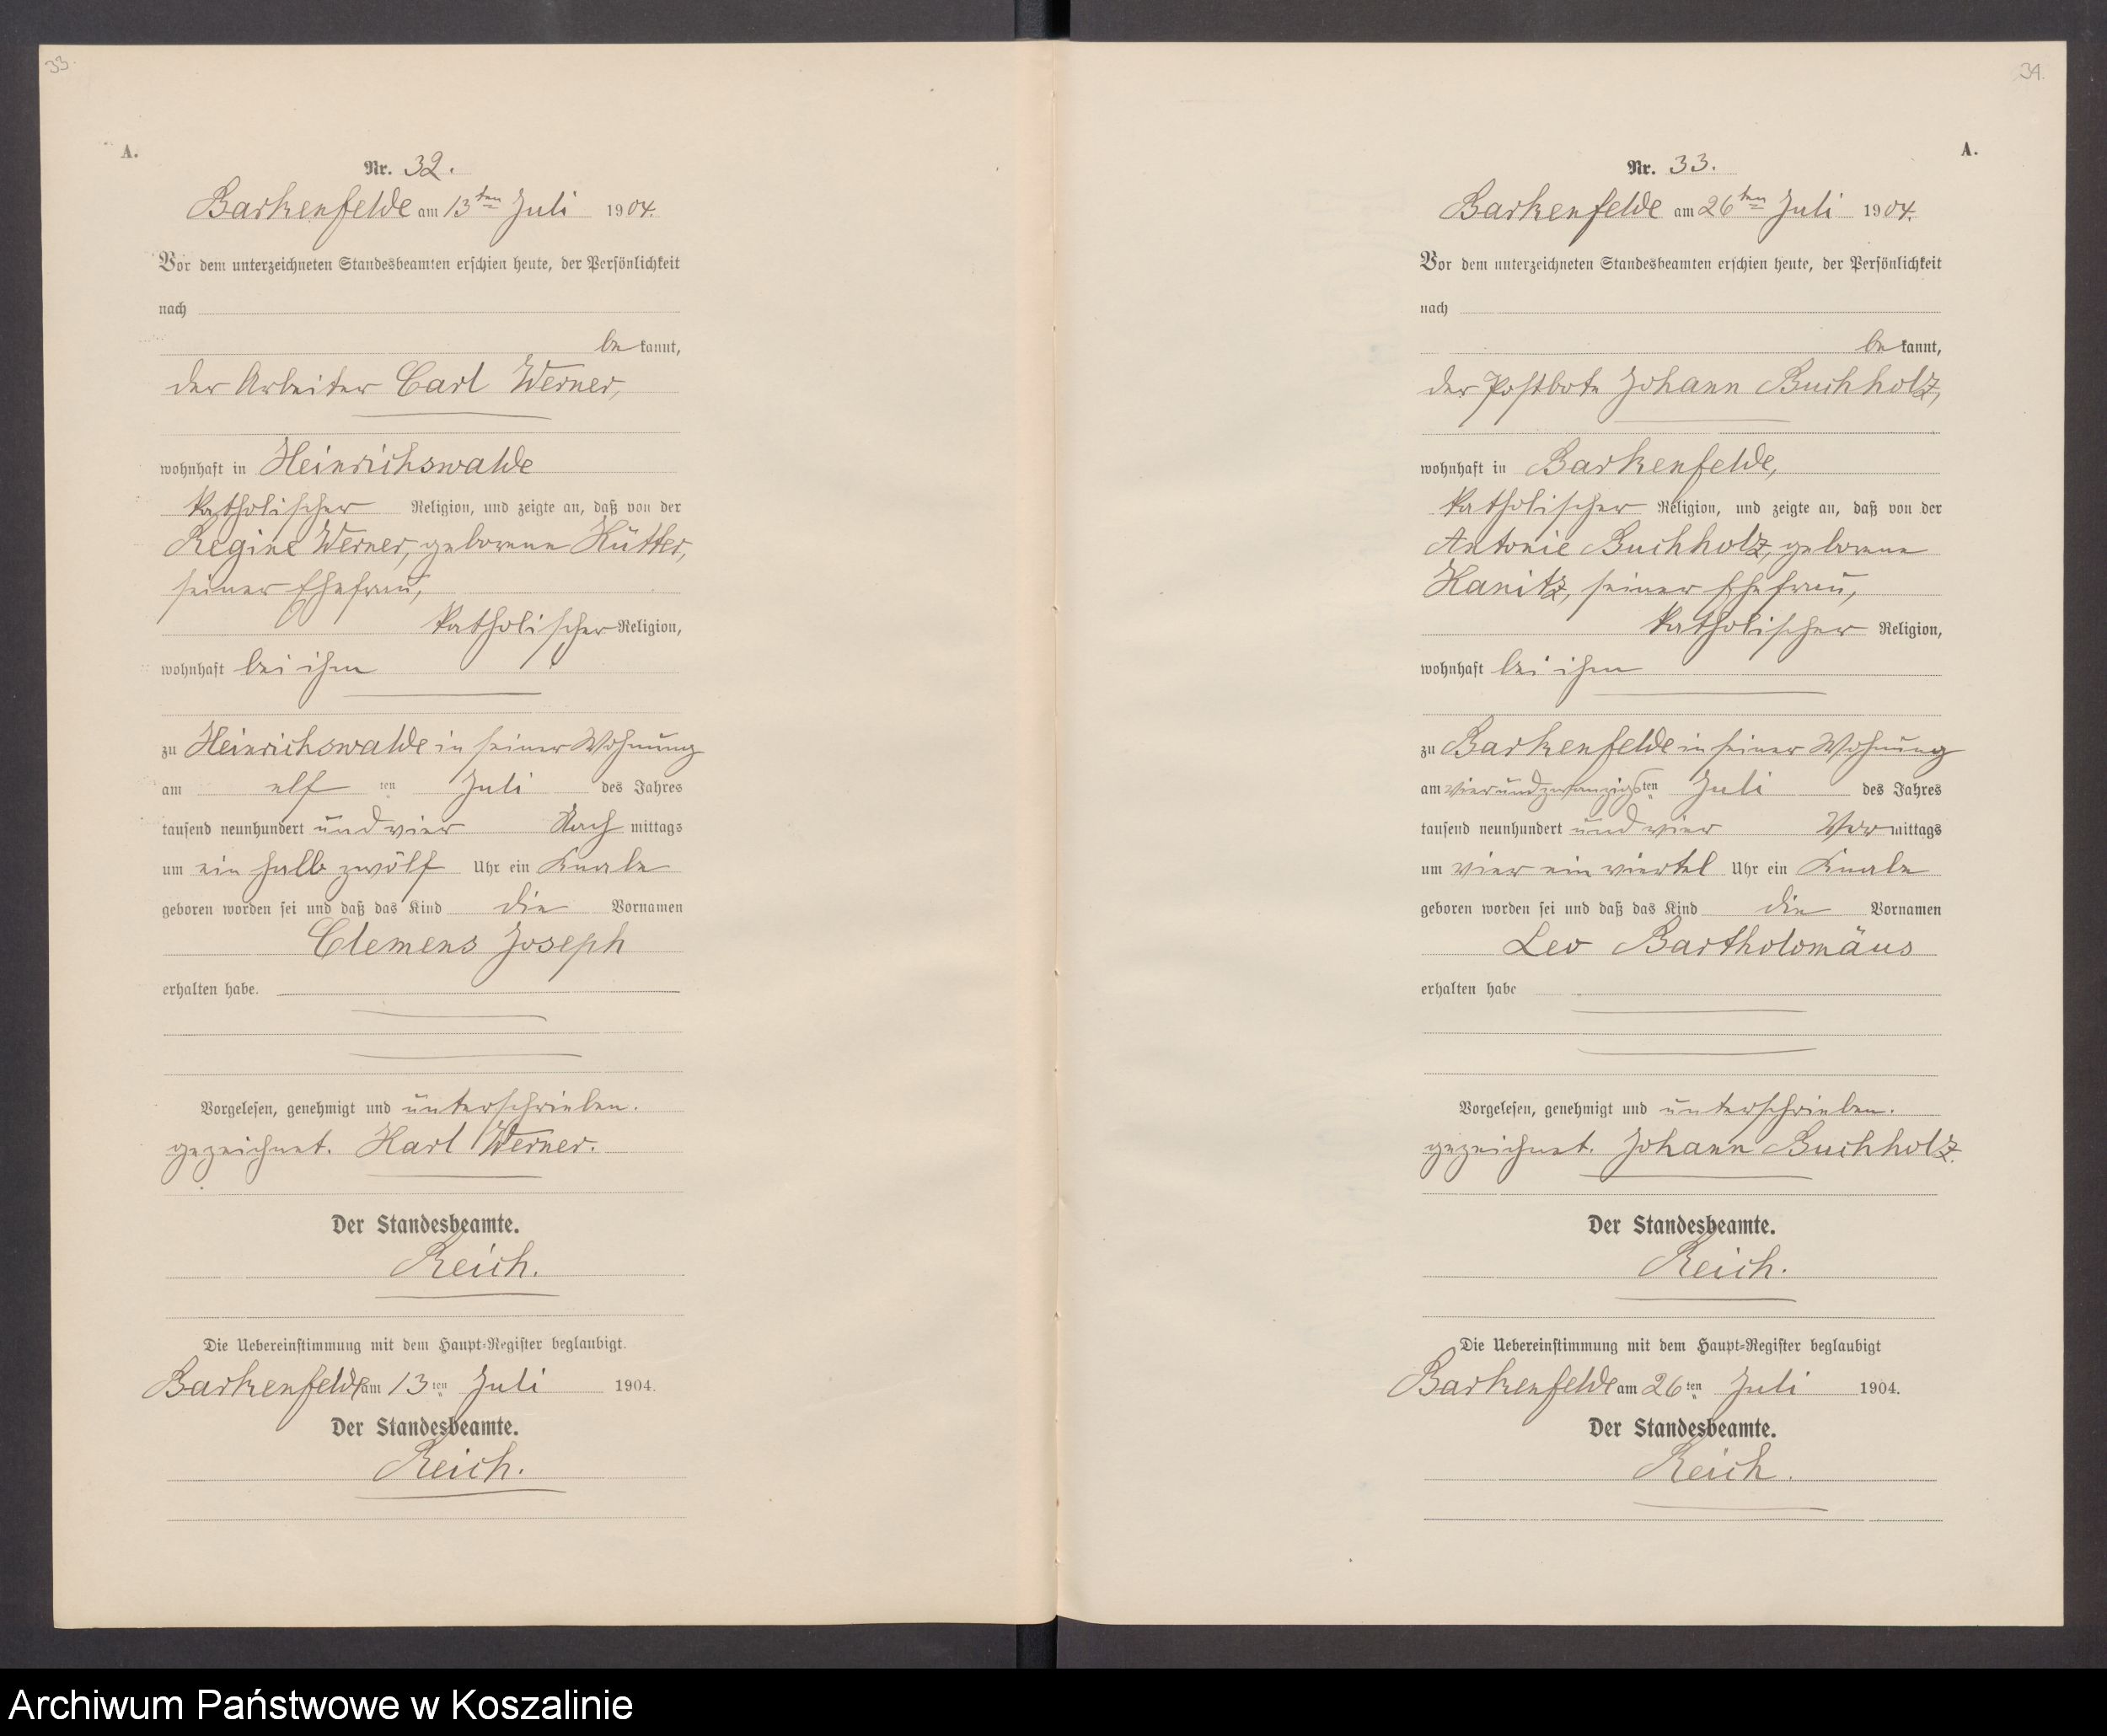 33.
A.
Nr. 32.
Barkenfelde am 13ten Juli 1904.
Vor dem unterzeichneten Standesbeamten erschien heute, der Persönlichkeit
nach
bekannt,
der Arbeiter Carl Werner,
wohnhaft in Heinrichswalde
katholischer Religion, und zeigte an, daß von der
Regine Werner, geborene Hütter,
seiner Ehefrau,
katholischer Religion,
wohnhaft bei ihm
zu Heinrichswalde in seiner Wohnung
am elften Juli des Jahres
tausend neunhundert und vier Nachmittags
um ein halb zwölf Uhr ein Knabe
geboren worden sei und daß das Kind die Vornamen
Clemens Joseph
erhalten habe.
Vorgelesen, genehmigt und unterschrieben.
gezeichnet. Karl Werner.
Der Standesbeamte.
Reich.
Die Uebereinstimmung mit dem Haupt-Register beglaubigt.
Barkenfelde am 13ten Juli 1904.
Der Standesbeamte.
Reich.
34.
A.
Nr. 33.
Barkenfelde am 26ten Juli 1904.
Vor dem unterzeichneten Standesbeamten erschien heute, der Persönlichkeit
nach
bekannt,
der Postbote Johann Buchholz,
wohnhaft in Barkenfelde,
katholischer Religion, und zeigte an, daß von der
Antonie Buchholz, geborene
Kanitz, seiner Ehefrau,
katholischer Religion,
wohnhaft bei ihm
zu Barkenfelde in seiner Wohnung
am vierundzwanzigsten Juli des Jahres
tausend neunhundert und vier Vormittags
um vier ein viertel Uhr ein Knabe
geboren worden sei und daß das Kind die Vornamen
Leo Bartholomäus
erhalten habe
Vorgelesen, genehmigt und unterschrieben.
gezeichnet. Johann Buchholz.
Der Standesbeamte.
Reich.
Die Uebereinstimmung mit dem Haupt-Register beglaubigt
Barkenfelde am 26ten Juli 1904.
Der Standesbeamte.
Reich.
Archiwum Państwowe w Koszalinie